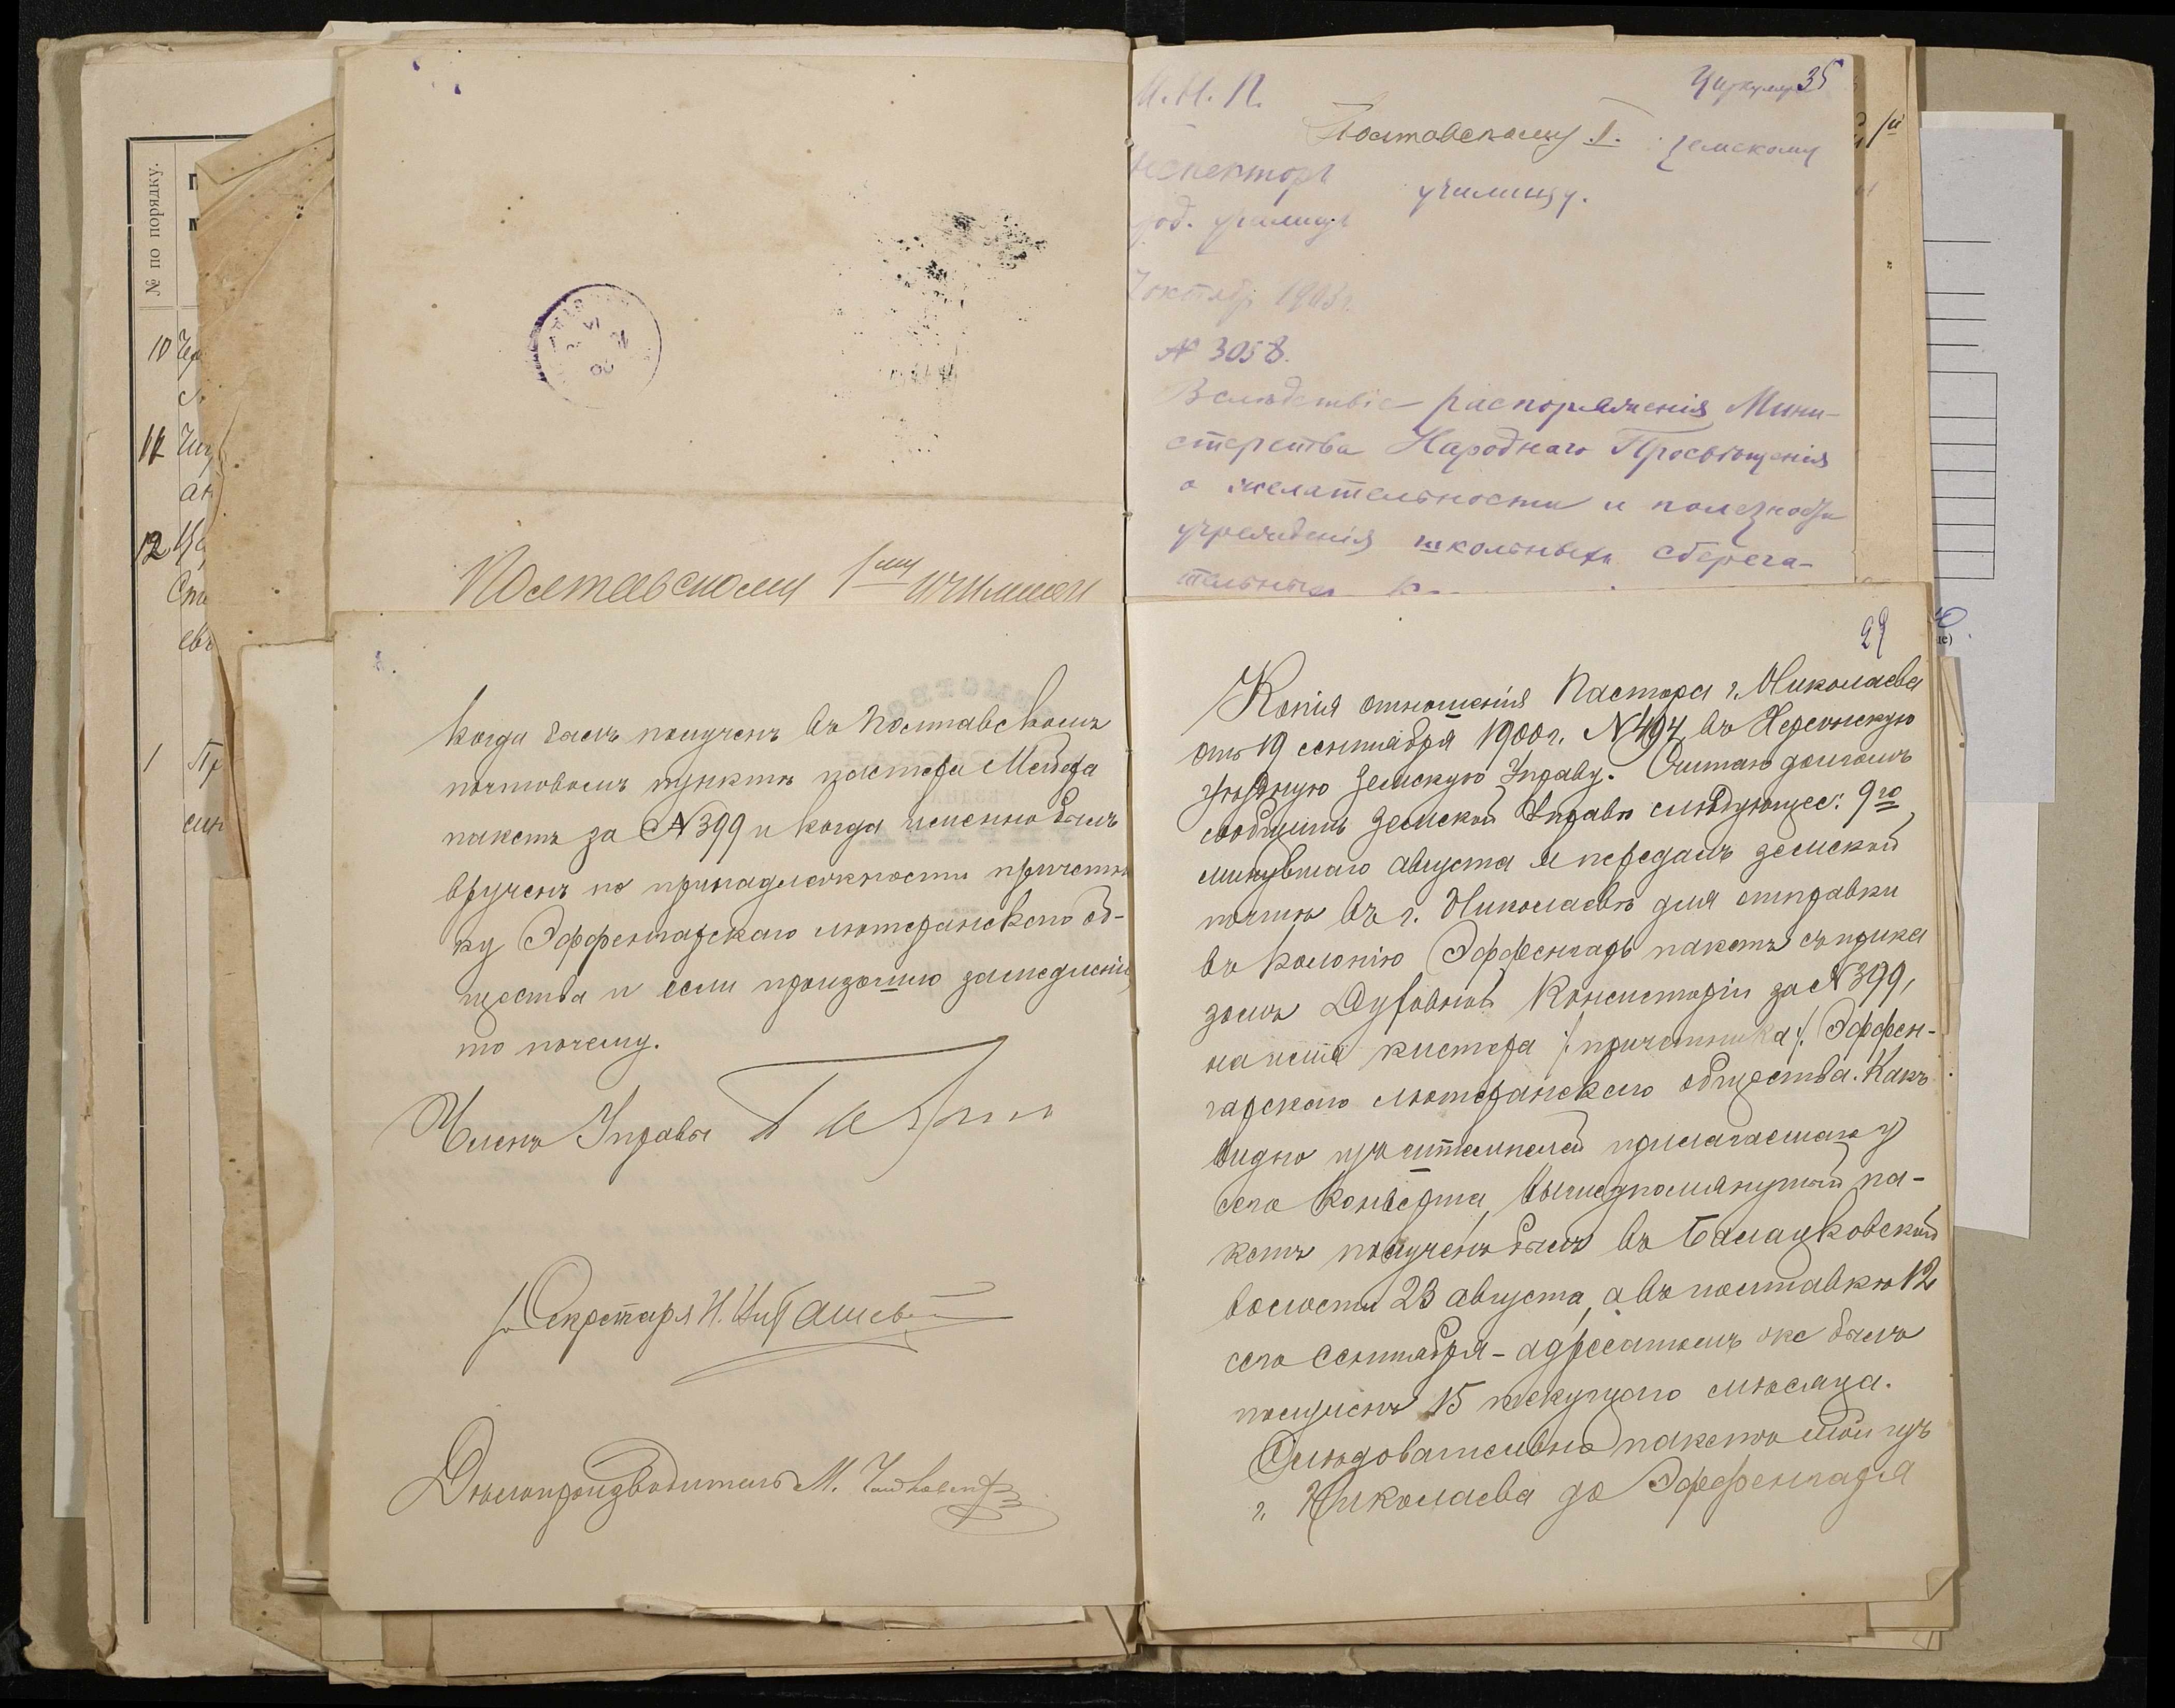 № по порядку.
10
11
12
1
Полтавскому 1му училищу
когда былъ полученъ въ Полтавскомъ
почтовомъ пунктѣ пастора Мейера
пакетъ за №399 и когда именно былъ
врученъ по принадлежности причетни
ку Эффенгарскаго лютеранскаго об-
щества и если произошло замедленіе,
то почему.
Членъ Управы
Секретаря Н.
Дѣлопроизводитель М.
М. Н. П.
Циркуляр 35
Полтавскому I. земскому
училищу.
Инспекторъ
училищъ
октябр 1903 г.
№ 3058.
Вслѣдствіе распоряженія Мини-
стерства Народнаго Просвѣщенія
о желательности и полезности
учрежденія школьныхъ сберега-
тельныхъ
29
Копія отношенія Пастора г. Николаева
отъ 19 сентября 1900 г. №494, въ Херсонскую
уѣздную Земскую Управу. Считаю долгомъ
сообщить Земской Управѣ слѣдующее: 9го
минувшаго августа я передалъ земской
почтѣ въ г. Николаевѣ для отправки
въ колонію Эффенгаръ пакетъ съ прика
зомъ Духовной Консисторіи за №399,
на имя кистера /: причетника :/ Эффен-
гарскаго лютеранскаго общества. Какъ
видно изъ штемпелей прилагаемаго у
сего конверта, вышеупомянутый па-
кетъ полученъ былъ въ Балацковской
волости 23 августа, а въ полтавкѣ 12
сего сентября - адресатомъ же былъ
полученъ 15 текущаго мѣсяца.
Слѣдовательно пакетъ мой изъ
г. Николаева до Эффенгара